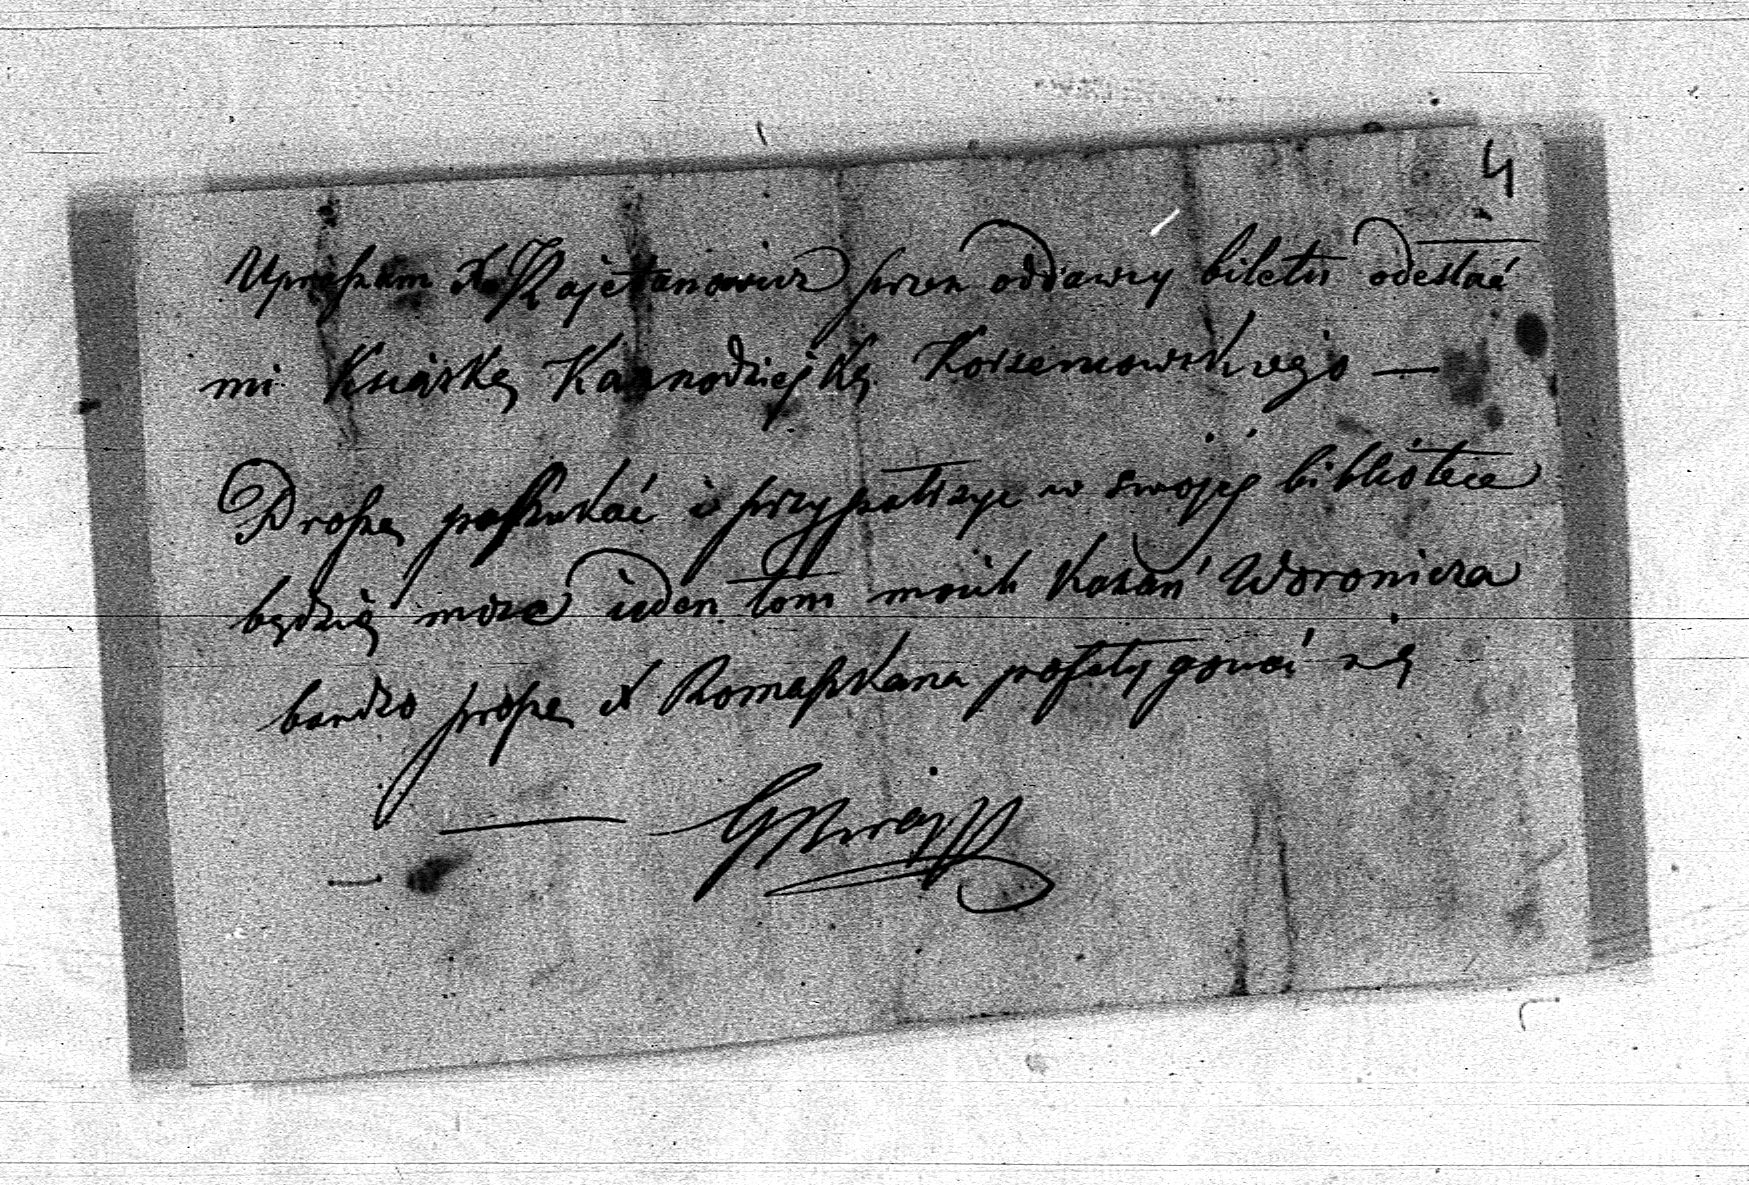 4
Upraszam X. Kajetanowicz przez oddawcy biletu odesłać
mi Książkę Kaznodziejską Korzeniowskiego —
Proszę poszukać i przypatrzyć w swojej bibliotece
będzie może ieden tom moich Kazań Woronicza
bardzo proszę X Romaszkana pofatygować się